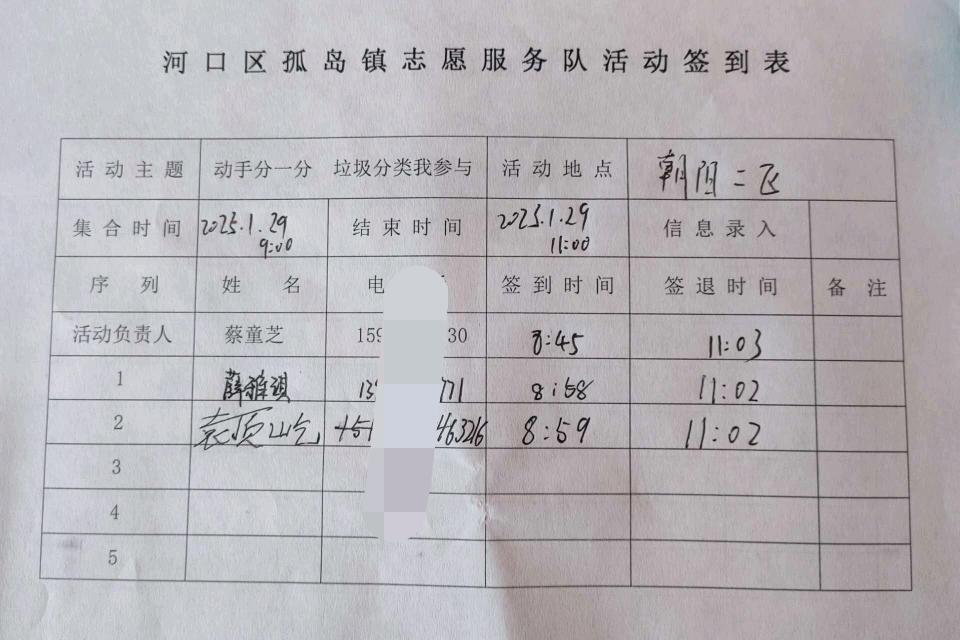 河口区孤岛镇志愿服务队活动签到表
活动主题 动手分一分 垃圾分类我参与 活动地点 朝阳二区
集合时间 2025.1.29 9:00 结束时间 2025.1.29 11:00 信息录入
序列 姓名 电 签到时间 签退时间 备注
活动负责人 蔡童芝 159 30 8:45 11:03
1 薛雅琪 771 8:58 11:02
2 151 46326 8:59 11:02
3
4
5